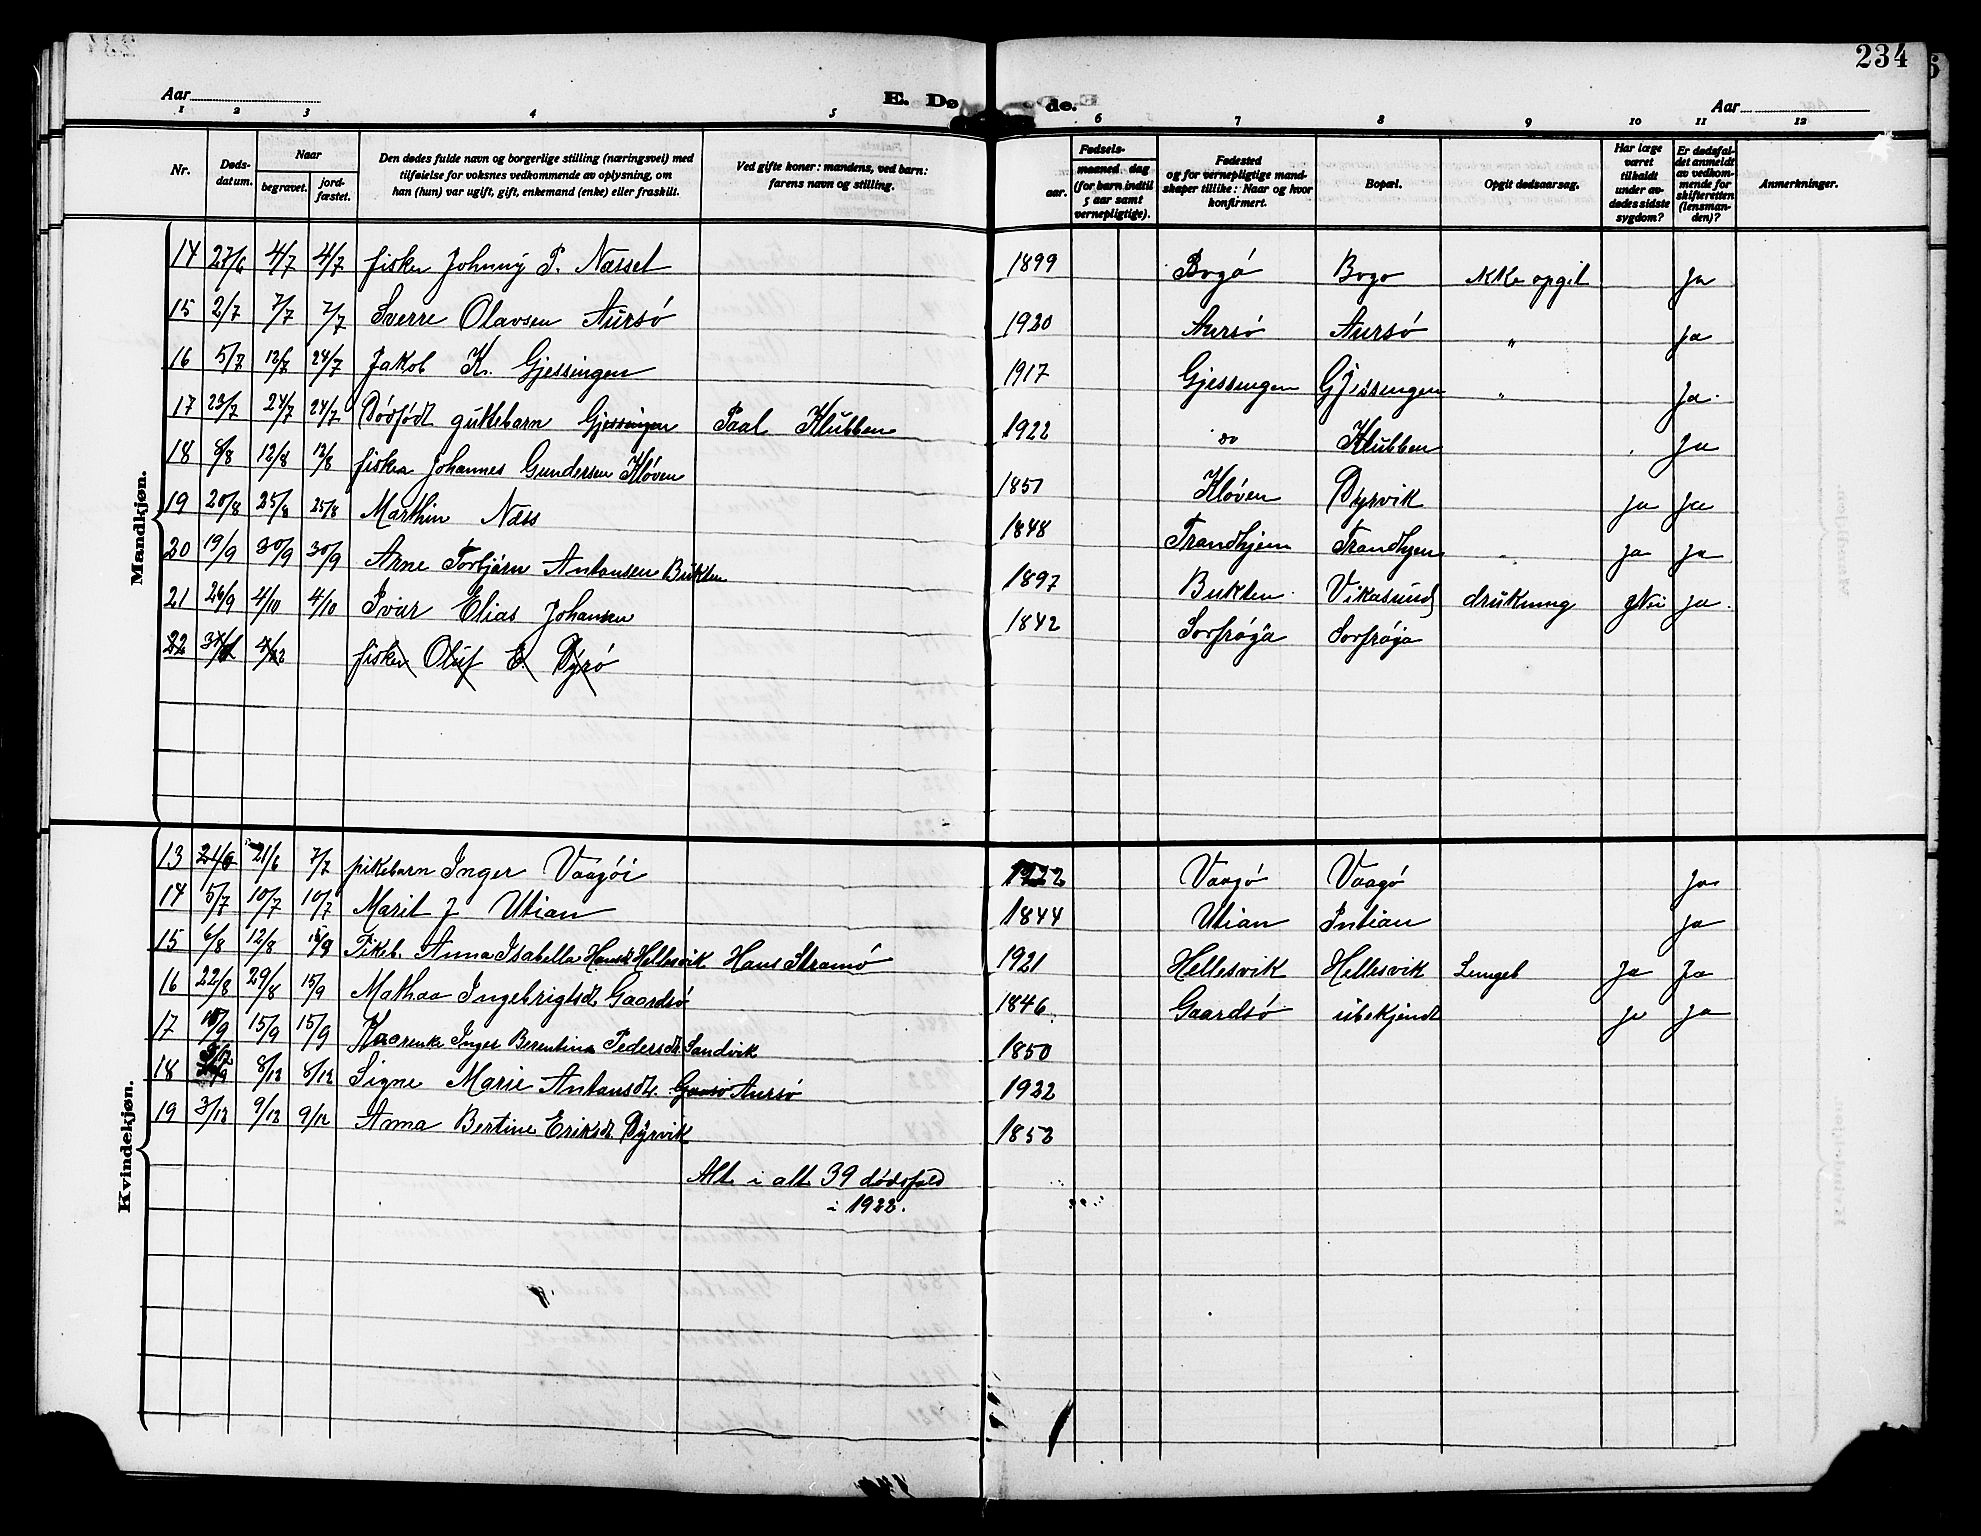 234
Aar
E. Dø de.
Aar
1 2 3 4 5 6 7 8 9 10 11 12
Nr.
Døds-
datum.
Naar
begravet.
jord-
fæstet.
Den dødes fulde navn og borgerlige stilling (næringsvei) med
tilføielse for voksnes vedkommende av oplysning, om
han (hun) var ugift, gift, enkemand (enke) eller fraskilt.
Ved gifte koner: mandens, ved barn:
farens navn og stilling.
Fødsels-
aar.
maaned. dag
(for barn indtil
5 aar samt
vernepligtige).
Fødested
og for vernepligtige mand-
skaper tillike: Naar og hvor
konfirmert.
Bopæl.
Opgit dødsaarsag.
Har læge
været
tilkaldt
under av-
dødes sidste
sygdom?
Er dødsfal-
det anmeldt
av vedkom-
mende for
skifteretten
(lensman-
den)?
Anmerkninger.
Mandkjøn.
14 27/6 4/7 4/7 fisker Johnny P. Næsset 1899 Bogø Bogo ikke opgit Ja
15 2/7 7/7 7/7 Sverre Olavsen Aursø 1920 Aursø Aursø " ja
16 5/7 12/7 24/7 Jakob K. Gjessingen 1917 Gjessingen Gjessingen " Ja.
17 23/7 24/7 24/7 Dødfødt guttebarn Gjessingen Paal Klubben 1922 do Klubben Ja
18 8/8 12/8 12/8 fisker Johannes Gundersen Kløven 1851 Kløven Dyrvik ja ja
19 20/8 25/8 25/8 Marthin Næss 1848 Trandhjem Trandhjem ja ja
20 19/9 30/9 30/9 Arne Torbjørn Antonsen Bukten 1897 Bukten Vikasund drukning Nei ja.
21 26/9 4/10 4/10 Ivar Elias Johansen 1842 Sorfrøja Sorfrøja
22 fisker Oluf E. Dyrø
Kvindekjøn.
13 21/6 21/6 7/7 pikebarn Inger Vaagøi 1922 Vaagø Vaagø Ja
14 5/7 10/7 10/7 Marit J Utian 1844 Utian Intian ja
15 6/8 12/8 Pikeb. Anna Isabella Hansdt Hellesvik Hans Stramø 1921 Hellesvik Hellesvik Lungeb Ja Ja
16 22/8 29/8 15/9 Mathea Ingebrigtsdt Gaardsø 1846 Gaardsø ubekjendt ja ja
17 10/9 15/9 15/9 Kaorenke Inger Berentina Pedersdt Sandvik 1850
18 8/12 8/12 Signe Marie Antonsdt. Aursø 1922
19 3/12 9/12 9/12 Anna Bertine Eriksdt Dyrvik 1852
Alt i alt 39 dødsfald
i 1922.